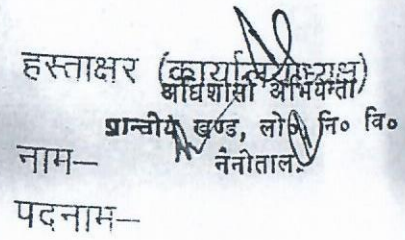 हस्ताक्षर (कार्यालयाध्यक्ष)
अधिशासी अभियन्ता
प्रान्तीय खण्ड, लो० नि० वि०
नैनीताल.
नाम—
पदनाम—